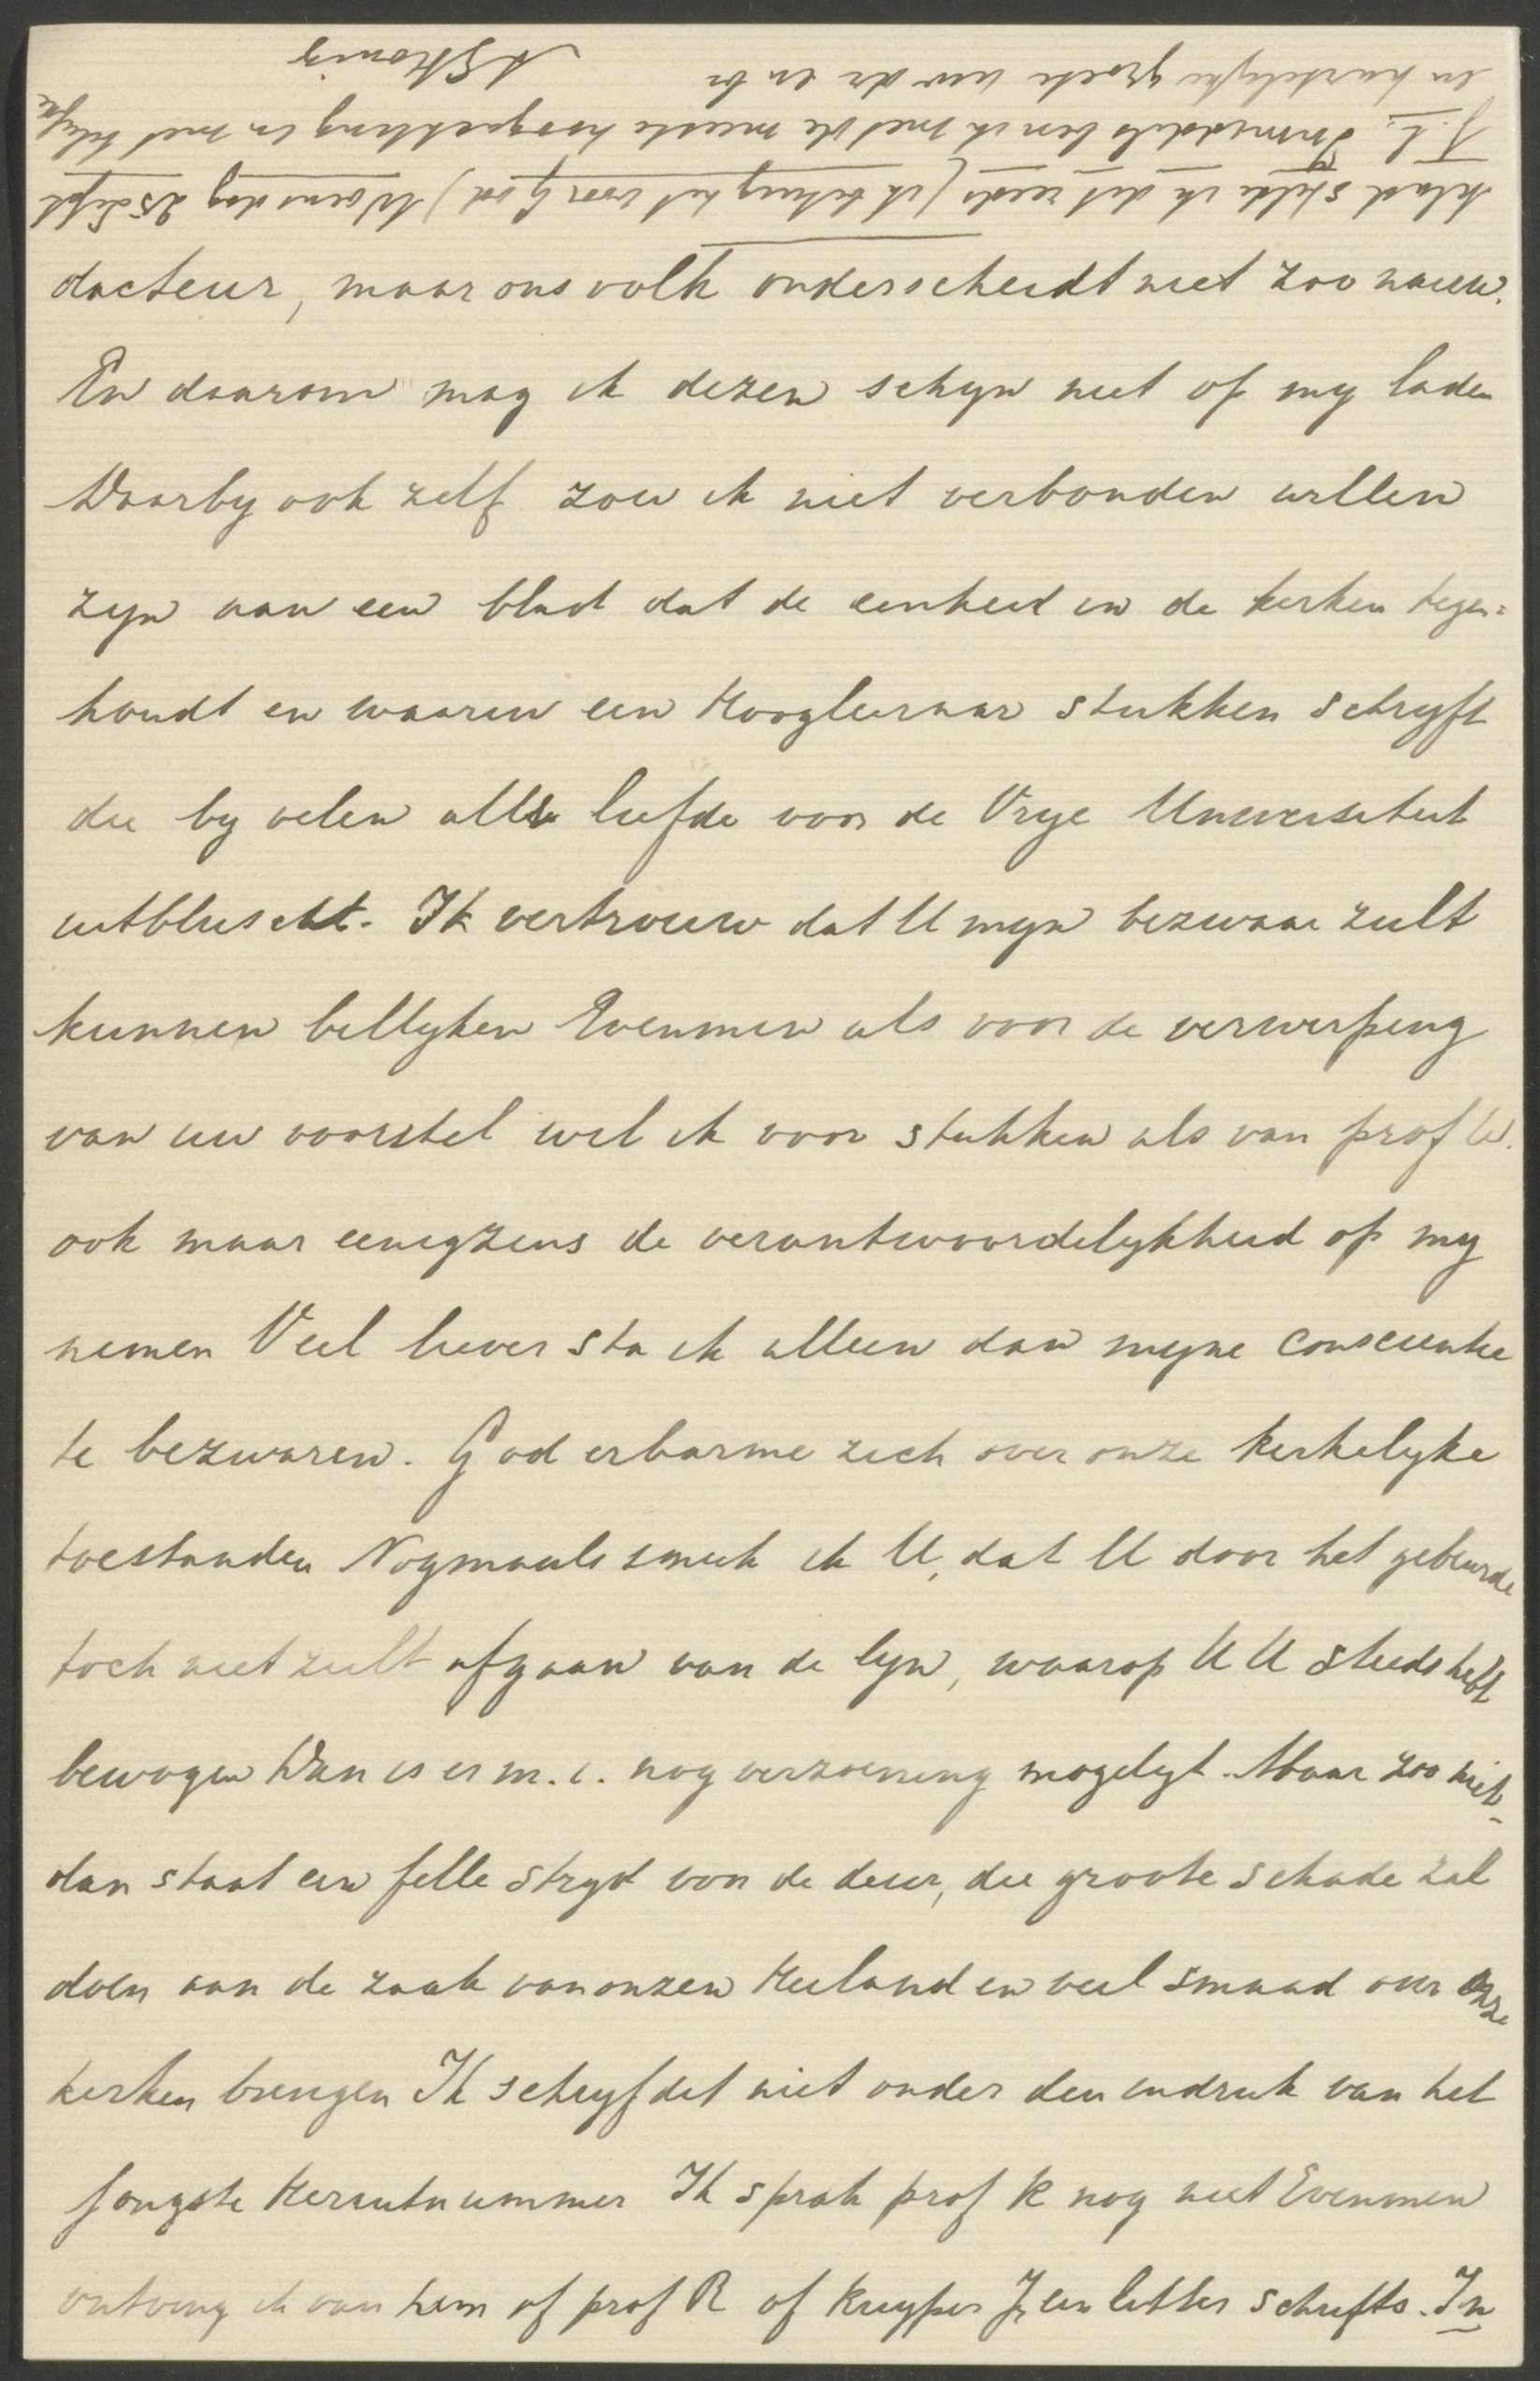 dacteur, maar ons volk onderscheidt niet zoo nauw.
En daarom mag ik dezen schyn niet op my laden
Daarby ook zelf zou ik niet verbonden willen
zyn aan een blad dat de eenheid in de kerken tegen=
houdt en waarin een Hoogleeraar stukken schryft
die by velen alle liefde voor de Vrye Universiteit
uitbluscht. Ik vertrouw dat U myn bezwaar zult
kunnen billyken Evenmin als voor de verwerping
van uw voorstel wil ik voor stukken als van prof W.
ook maar eenigzins de verantwoordelykheid op my
nemen Veel liever sta ik alleen dan myne conscientie
te bezwaren. God erbarme zich over onze kerkelyke
toestanden Nogmaals smeek ik U, dat U door het gebeurde
toch niet zult afgaan van de lyn, waarop U U steeds hebt
bewogen Dan is er m.i. nog verzoening mogelyk. Maar zoo niet
dan staat een felle stryd voor de deur, die groote schade zal
doen aan de zaak van onzen Heiland en veel smaad over onze
kerken brengen Ik schryf dit niet onder den indruk van het
jongste Herautnummer Ik sprak prof K nog niet Evenmin
ontving ik van hem of prof R of Kuyper Jr een letter schrifts. In
klad stelde ik dit reeds (ik betuig het voor God) Woensdag 25 Sept
j.l. Inmiddels ben ik met de meeste hoogachting en met
en hartelyke groete uw dw en br